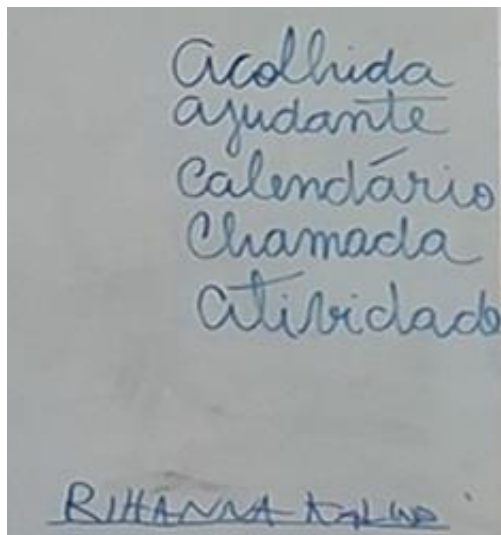 Acolhida
ajudante
Calendário
Chamada
Atividade
RIHANNA